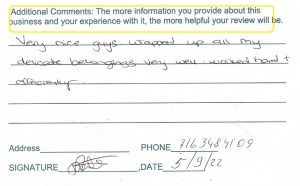 Additional Comments: The more information you provide about this
business and your experience with it, the more helpful your review will be.
Very nice guys wrapped up all my
delicate belongings very well. worked hard +
efficiently
Address
PHONE 7163484109
SIGNATURE
,DATE 5/9/22